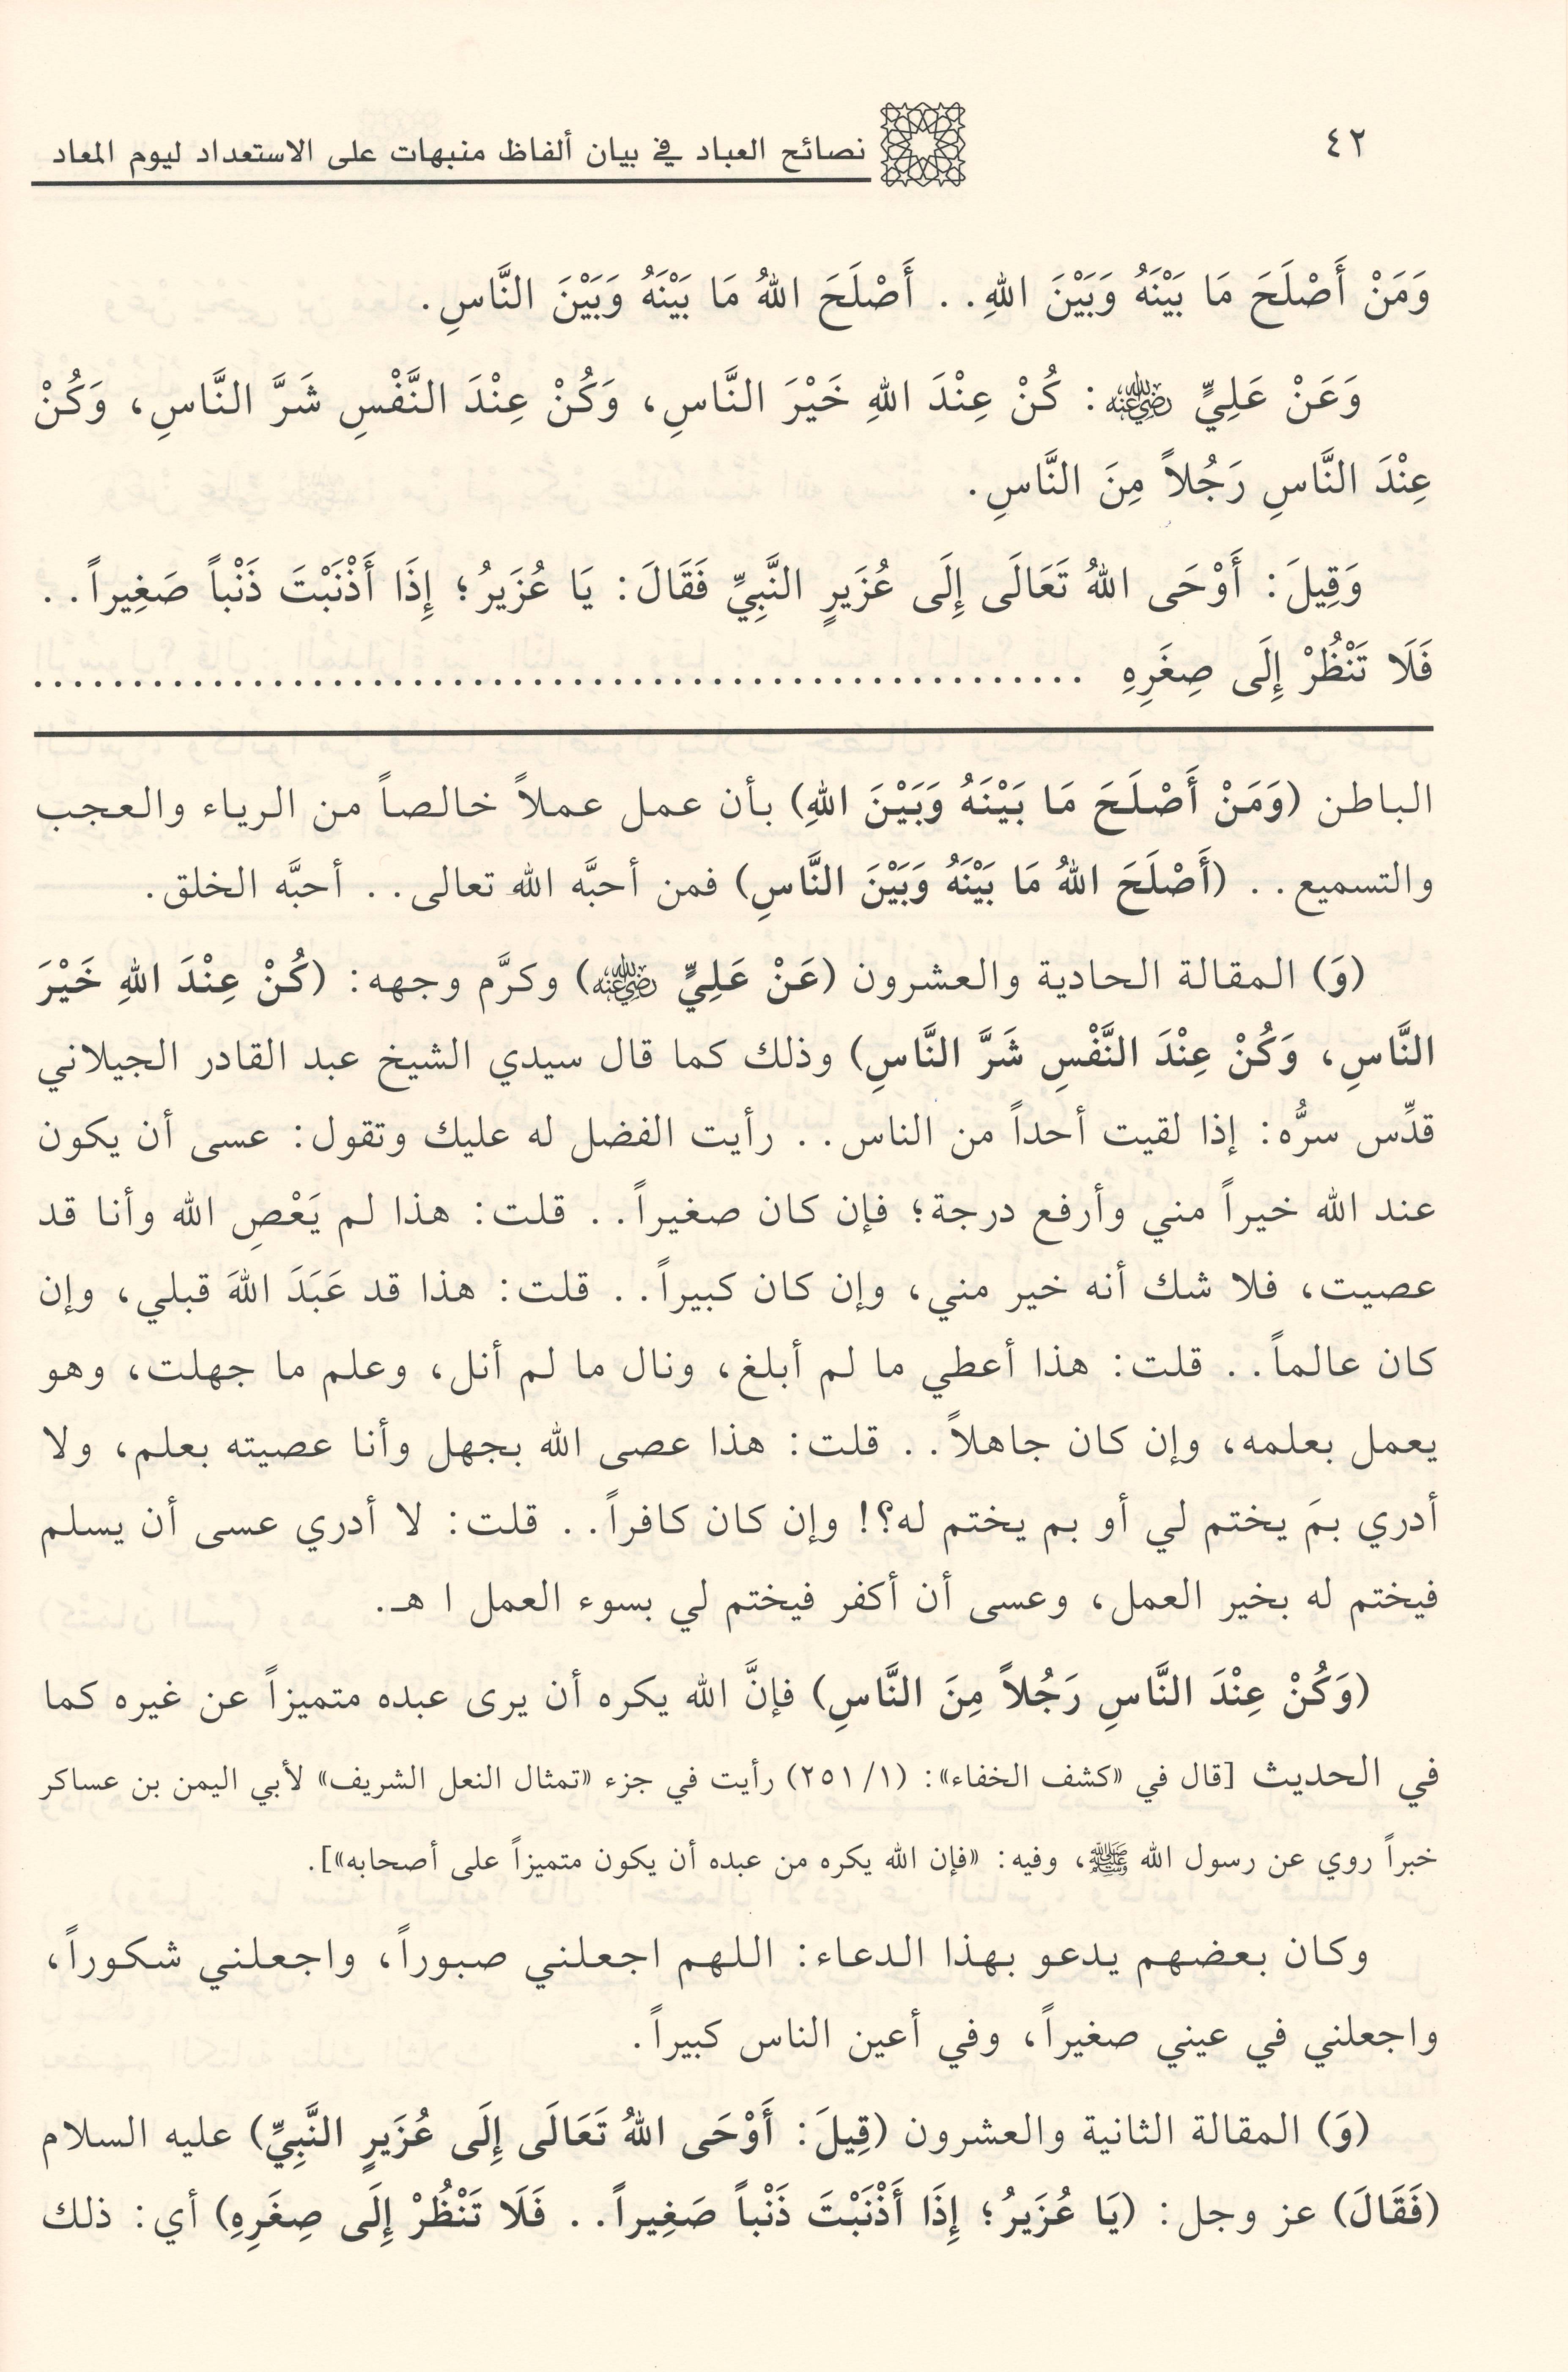 ٤٢
نصائح العباد في بيان ألفاظ منبهات على الاستعداد ليوم المعاد
وَمَنْ أَصْلَحَ مَا بَيْنَهُ وَبَيْنَ اللهِ. . أَصْلَحَ اللهُ مَا بَيْنَهُ وَبَيْنَ النَّاسِ.
وَعَنْ عَلِيٍّ رضي الله عنه: كُنْ عِنْدَ اللهِ خَيْرَ النَّاسِ، وَكُنْ عِنْدَ النَّفْسِ شَرَّ النَّاسِ، وَكُنْ
عِنْدَ النَّاسِ رَجُلاً مِنَ النَّاسِ.
وَقِيلَ: أَوْحَى اللهُ تَعَالَى إِلَى عُزَيرٍ النَّبِيِّ فَقَالَ: يَا عُزَيرُ؛ إِذَا أَذْنَبْتَ ذَنْباً صَغِيراً. .
فَلَا تَنْظُرْ إِلَى صِغَرِهِ ......................................................
الباطن (وَمَنْ أَصْلَحَ مَا بَيْنَهُ وَبَيْنَ اللهِ) بأن عمل عملاً خالصاً من الرياء والعجب
والتسميع. . (أَصْلَحَ اللهُ مَا بَيْنَهُ وَبَيْنَ النَّاسِ) فمن أحبَّه الله تعالى. . أحبَّه الخلق.
(وَ) المقالة الحادية والعشرون (عَنْ عَلِيٍّ رضي الله عنه) وكرَّم وجهه: (كُنْ عِنْدَ اللهِ خَيْرَ
النَّاسِ، وَكُنْ عِنْدَ النَّفْسِ شَرَّ النَّاسِ) وذلك كما قال سيدي الشيخ عبد القادر الجيلاني
قدِّس سرُّه: إذا لقيت أحداً من الناس. . رأيت الفضل له عليك وتقول: عسى أن يكون
عند الله خيراً مني وأرفع درجة؛ فإن كان صغيراً. . قلت: هذا لم يَعْصِ الله وأنا قد
عصيت، فلا شك أنه خير مني، وإن كان كبيراً. . قلت: هذا قد عَبَدَ اللهَ قبلي، وإن
كان عالماً. . قلت: هذا أعطي ما لم أبلغ، ونال ما لم أنل، وعلم ما جهلت، وهو
يعمل بعلمه، وإن كان جاهلاً. . قلت: هذا عصى الله بجهل وأنا عصيته بعلم، ولا
أدري بمَ يختم لي أو بم يختم له؟! وإن كان كافراً. . قلت: لا أدري عسى أن يسلم
فيختم له بخير العمل، وعسى أن أكفر فيختم لي بسوء العمل ا هـ.
(وَكُنْ عِنْدَ النَّاسِ رَجُلاً مِنَ النَّاسِ) فإنَّ الله يكره أن يرى عبده متميزاً عن غيره كما
في الحديث [قال في «كشف الخفاء»: (٢٥١/١) رأيت في جزء «تمثال النعل الشريف» لأبي اليمن بن عساكر
خبراً روي عن رسول الله ﷺ، وفيه: «فإن الله يكره من عبده أن يكون متميزاً على أصحابه»].
وكان بعضهم يدعو بهذا الدعاء: اللهم اجعلني صبوراً، واجعلني شكوراً،
واجعلني في عيني صغيراً، وفي أعين الناس كبيراً.
(وَ) المقالة الثانية والعشرون (قِيلَ: أَوْحَى اللهُ تَعَالَى إِلَى عُزَيرٍ النَّبِيِّ) عليه السلام
(فَقَالَ) عز وجل: (يَا عُزَيرُ؛ إِذَا أَذْنَبْتَ ذَنْباً صَغِيراً. . فَلَا تَنْظُرْ إِلَى صِغَرِهِ) أي: ذلك